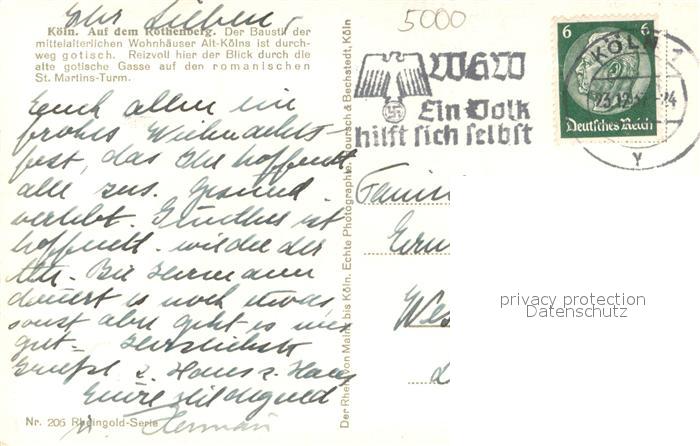 Ihr Lieben,
5000
Köln. Auf dem Rothenberg. Der Baustil der
mittelalterlichen Wohnhäuser Alt-Kölns ist durch-
weg gotisch. Reizvoll hier der Blick durch die
alte gotische Gasse auf den romanischen
St. Martins-Turm.
Euch allen ein
frohes Weihnachts-
fest, das Ihr hoffentl.
alle zus. gesund
verlebt. ist
hoffentl. wieder der
Alte. Bei Hermann
dauert es noch etwas
sonst aber geht es uns
gut. Herzlichste
Grüße v. Haus z. Haus
Eure Hildegund
u. Hermann
Nr. 206 Rheingold-Serie
Der Rhein von Mainz bis Köln. Echte Photographie. Hoursch & Bechstedt, Köln
WHW
Ein Volk
hilft sich selbst
6 6
Deutsches Reich
KÖLN 1
23.12. -24
Y
privacy protection
Datenschutz